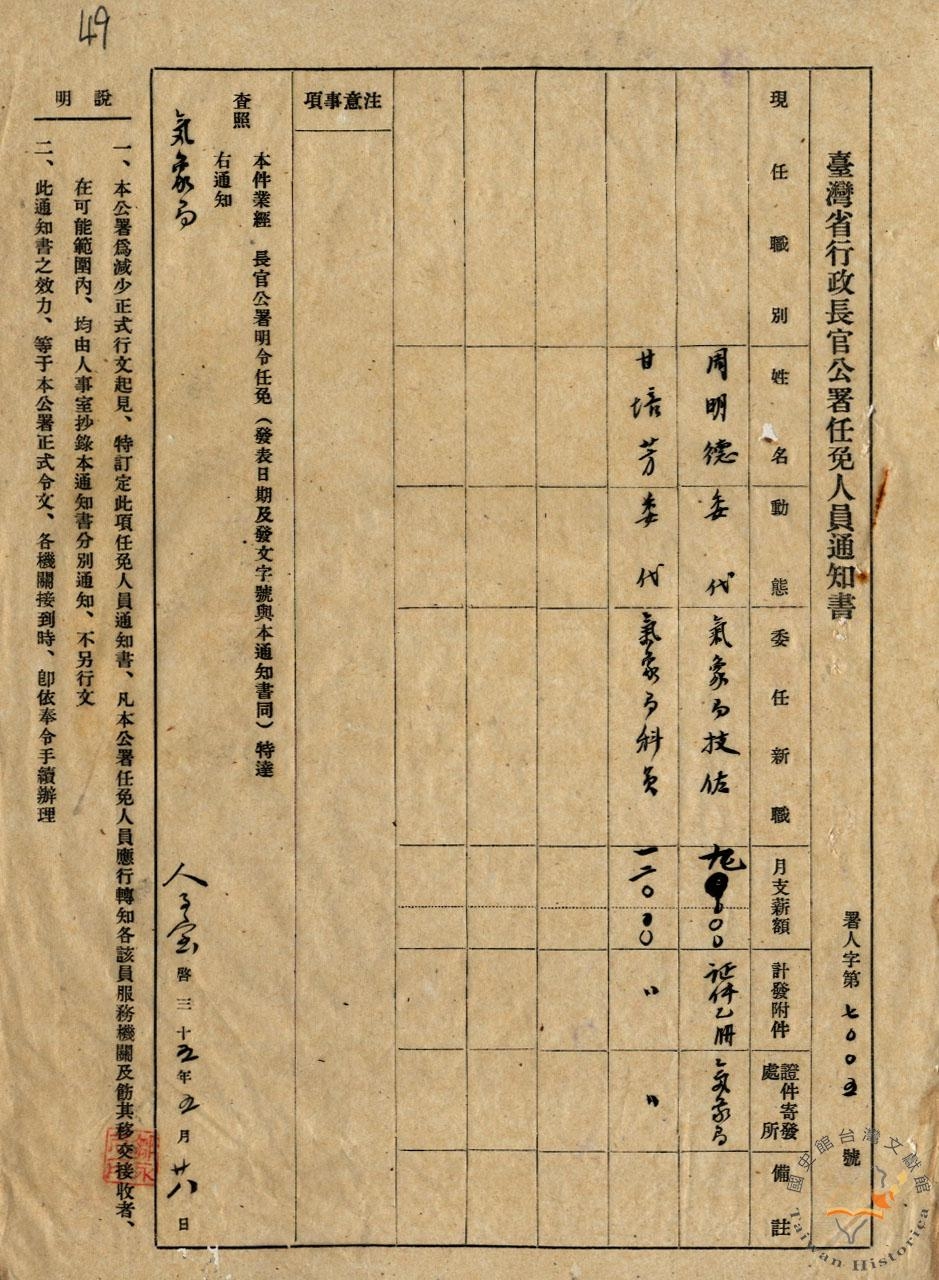 49
臺灣省行政長官公署任免人員通知書
署人字第七〇〇五號
現任職別
姓名
動態
委任新職
月支薪額
計發附件
證件寄發處所
備註
周明德
委代
氣象局技佐
九〇〇
証件乙冊
氣象局
甘培芳
委代
氣象局科員
一二〇〇〇
〃
〃
注意事項
本件業經 長官公署明令任免（發表日期及發文字號與本通知書同）特達
查照
右通知
氣象局
人事室啓三十五年五月廿八日
說明
一、本公署爲減少正式行文起見、特訂定此項任免人員通知書、凡本公署任免人員應行轉知各該員服務機關及飭其移交接收者、
在可能範圍內、均由人事室抄錄本通知書分別通知、不另行文
二、此通知書之效力、等于本公署正式令文、各機關接到時、卽依奉令手續辦理
國史館台灣文獻館
Taiwan Historica